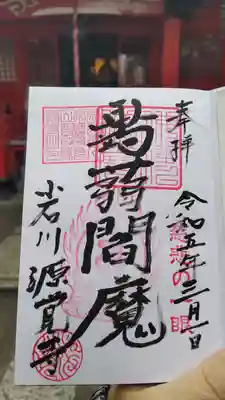 奉拝
令和五年三月一日
慈悲の眼
蒟蒻閻魔
小石川
源覚寺